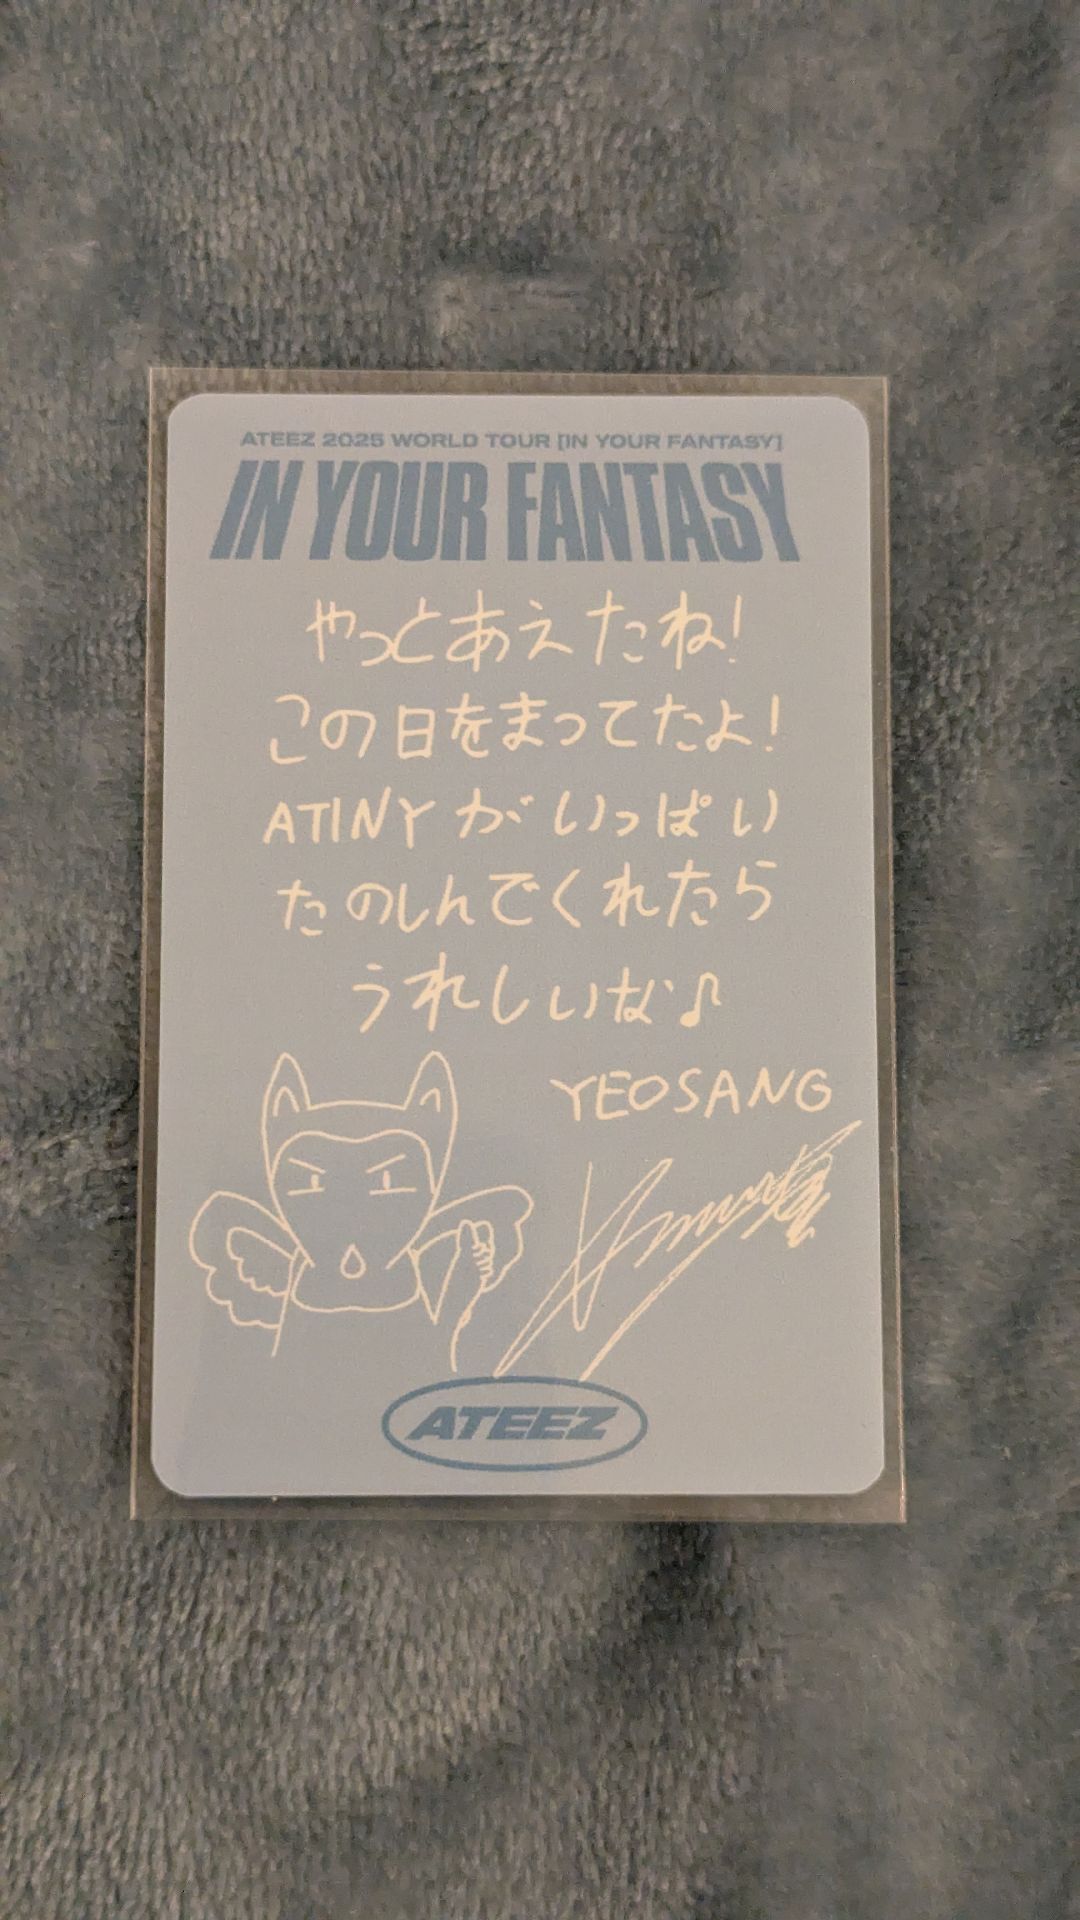 ATEEZ 2025 WORLD TOUR [IN YOUR FANTASY]
IN YOUR FANTASY
やっとあえたね!
この日をまってたよ!
ATINYがいっぱい
たのしんでくれたら
うれしいな♪
YEOSANG
ATEEZ